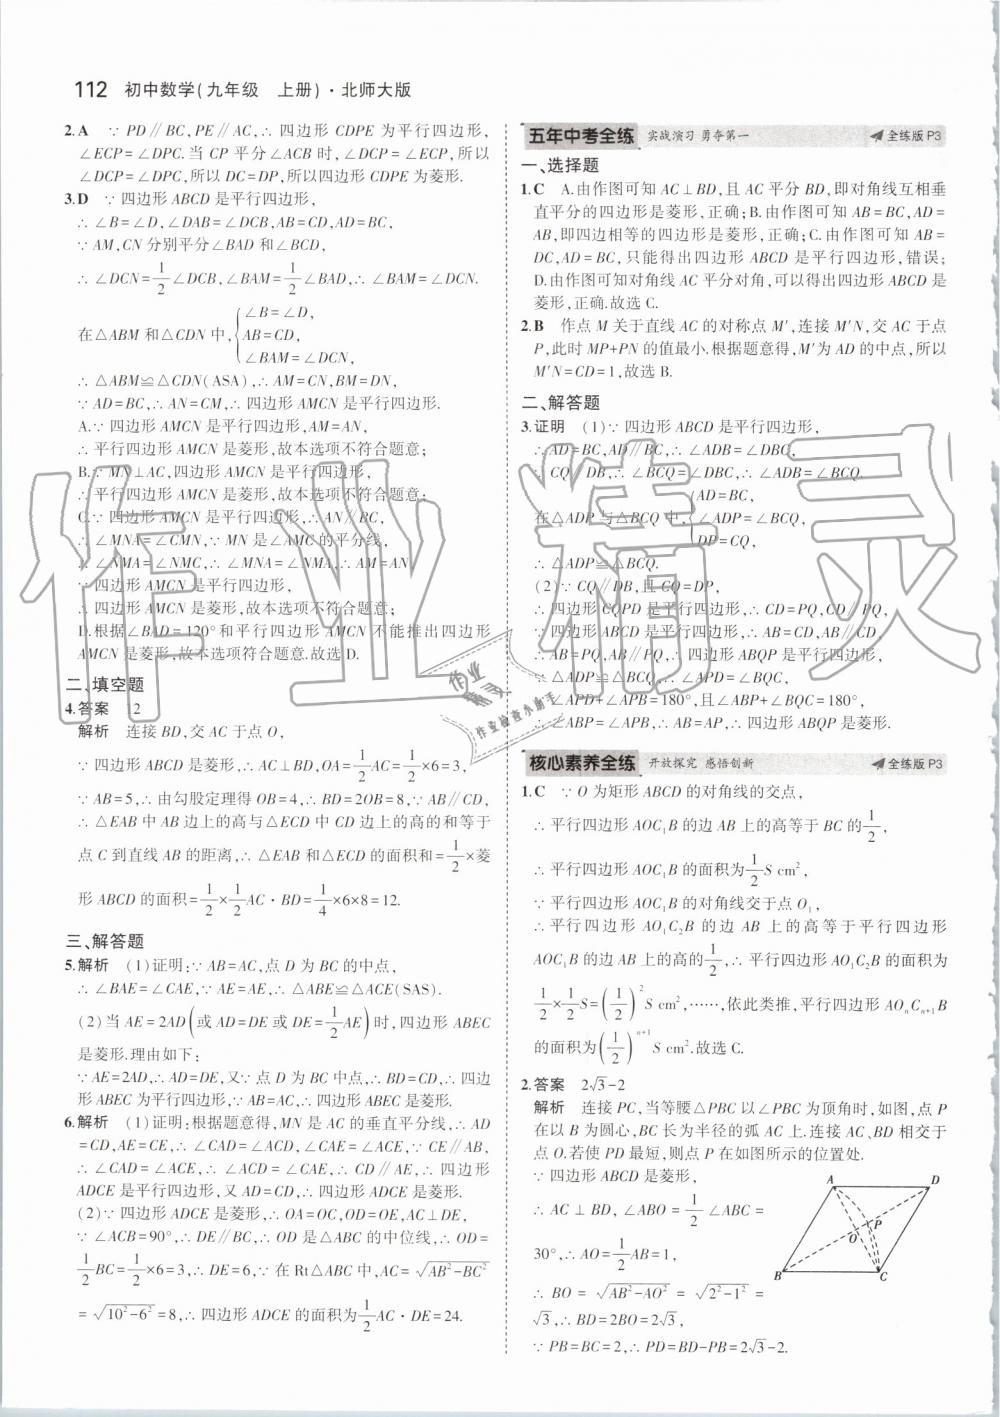 112 初中数学(九年级 上册)·北师大版
2.A ∵ PD∥BC,PE∥AC,∴ 四边形 CDPE 为平行四边形,
∠ECP=∠DPC.当 CP 平分∠ACB 时,∠DCP=∠ECP,所以
∠DCP=∠DPC,所以 DC=DP,所以四边形 CDPE 为菱形.
3.D ∵ 四边形 ABCD 是平行四边形,
∴ ∠B=∠D,∠DAB=∠DCB,AB=CD,AD=BC,
∵ AM,CN 分别平分∠BAD 和∠BCD,
∴ ∠DCN=1/2∠DCB,∠BAM=1/2∠BAD,∴ ∠BAM=∠DCN.
在△ABM 和△CDN 中,{∠B=∠D,
AB=CD,
∠BAM=∠DCN,
∴ △ABM≌△CDN(ASA),∴ AM=CN,BM=DN,
∵ AD=BC,∴ AN=CM,∴ 四边形 AMCN 是平行四边形.
A.∵ 四边形 AMCN 是平行四边形,AM=AN,
∴ 平行四边形 AMCN 是菱形,故本选项不符合题意;
B.∵ MN⊥AC,四边形 AMCN 是平行四边形,
∴ 平行四边形 AMCN 是菱形,故本选项不符合题意;
C.∵ 四边形 AMCN 是平行四边形,∴ AN∥BC,
∴ ∠MNA=∠CMN,∵ MN 是∠AMC 的平分线,
∴ ∠NMA=∠NMC,∴ ∠MNA=∠NMA,∴ AM=AN,
∵ 四边形 AMCN 是平行四边形,
∴ 四边形 AMCN 是菱形,故本选项不符合题意;
D.根据∠BAD=120°和平行四边形 AMCN 不能推出四边形
AMCN 是菱形,故本选项符合题意.故选 D.
二、填空题
4.答案 12
解析 连接 BD,交 AC 于点 O,
∵ 四边形 ABCD 是菱形,∴ AC⊥BD,OA=1/2AC=1/2×6=3,
∵ AB=5,∴ 由勾股定理得 OB=4,∴ BD=2OB=8,∵ AB∥CD,
∴ △EAB 中 AB 边上的高与△ECD 中 CD 边上的高的和等于
点 C 到直线 AB 的距离,∴ △EAB 和△ECD 的面积和=1/2×菱
形 ABCD 的面积=1/2×1/2AC·BD=1/4×6×8=12.
三、解答题
5.解析 (1)证明:∵ AB=AC,点 D 为 BC 的中点,
∴ ∠BAE=∠CAE,∵ AE=AE,∴ △ABE≌△ACE(SAS).
(2)当 AE=2AD(或 AD=DE 或 DE=1/2AE)时,四边形 ABEC
是菱形.理由如下:
∵ AE=2AD,∴ AD=DE,又∵ 点 D 为 BC 中点,∴ BD=CD,∴ 四边
形 ABEC 为平行四边形,∵ AB=AC,∴ 四边形 ABEC 是菱形.
6.解析 (1)证明:根据题意得,MN 是 AC 的垂直平分线,∴ AD
=CD,AE=CE,∴ ∠CAD=∠ACD,∠CAE=∠ACE,∵ CE∥AB,
∴ ∠CAD=∠ACE,∴ ∠ACD=∠CAE,∴ CD∥AE,∴ 四边形
ADCE 是平行四边形,又 AD=CD,∴ 四边形 ADCE 是菱形.
(2)∵ 四边形 ADCE 是菱形,∴ OA=OC,OD=OE,AC⊥DE,
∵ ∠ACB=90°,∴ DE∥BC,∴ OD 是△ABC 的中位线,∴ OD=
1/2BC=1/2×6=3,∴ DE=6,∵ 在 Rt△ABC 中,AC=√(AB²-BC²)
=√(10²-6²)=8,∴ 四边形 ADCE 的面积为1/2AC·DE=24.
五年中考全练 实战演习 勇夺第一 全练版 P3
一、选择题
1.C A.由作图可知 AC⊥BD,且 AC 平分 BD,即对角线互相垂
直平分的四边形是菱形,正确;B.由作图可知 AB=BC,AD=
AB,即四边相等的四边形是菱形,正确;C.由作图可知 AB=
DC,AD=BC,只能得出四边形 ABCD 是平行四边形,错误;
D.由作图可知对角线 AC 平分对角,可以得出四边形 ABCD 是
菱形,正确.故选 C.
2.B 作点 M 关于直线 AC 的对称点 M′,连接 M′N,交 AC 于点
P,此时 MP+PN 的值最小.根据题意得,M′为 AD 的中点,所以
M′N=CD=1,故选 B.
二、解答题
3.证明 (1)∵ 四边形 ABCD 是平行四边形,
∴ AD=BC,AD∥BC,∴ ∠ADB=∠DBC,
∵ CQ∥DB,∴ ∠BCQ=∠DBC,∴ ∠ADB=∠BCQ.
在△ADP 与△BCQ 中,{AD=BC,
∠ADP=∠BCQ,
DP=CQ,
∴ △ADP≌△BCQ.
(2)∵ CQ∥DB,且 CQ=DP,
∴ 四边形 CQPD 是平行四边形,∴ CD=PQ,CD∥PQ,
∵ 四边形 ABCD 是平行四边形,∴ AB=CD,AB∥CD,
∴ AB=PQ,AB∥PQ,∴ 四边形 ABQP 是平行四边形,
∵ △ADP≌△BCQ,∴ ∠APD=∠BQC,
∵ ∠APD+∠APB=180°,且∠ABP+∠BQC=180°,
∴ ∠ABP=∠APB,∴ AB=AP,∴ 四边形 ABQP 是菱形.
核心素养全练 开放探究 感悟创新 全练版 P3
1.C ∵ O 为矩形 ABCD 的对角线的交点,
∴ 平行四边形 AOC₁B 的边 AB 上的高等于 BC 的1/2,
∴ 平行四边形 AOC₁B 的面积为1/2S cm²,
∵ 平行四边形 AOC₁B 的对角线交于点 O₁,
∴ 平行四边形 AO₁C₂B 的边 AB 上的高等于平行四边形
AOC₁B 的边 AB 上的高的1/2,∴ 平行四边形 AO₁C₂B 的面积为
1/2×1/2S=(1/2)²S cm²,……,依此类推,平行四边形 AOₙCₙ₊₁B
的面积为(1/2)ⁿ⁺¹S cm².故选 C.
2.答案 2√3-2
解析 连接 PC,当等腰△PBC 以∠PBC 为顶角时,如图,点 P
在以 B 为圆心,BC 长为半径的弧 AC 上.连接 AC,BD 相交于
点 O.若使 PD 最短,则点 P 在如图所示的位置处.
∵ 四边形 ABCD 是菱形,
∴ AC⊥BD,∠ABO=1/2∠ABC=
30°,∴ AO=1/2AB=1,
∴ BO=√(AB²-AO²)=√(2²-1²)=
√3,∴ BD=2BO=2√3,
∵ PB=BC=2,∴ PD=BD-PB=2√3-2.
A
D
P
O
B
C
作业精灵
作业精灵
作业检查小助手